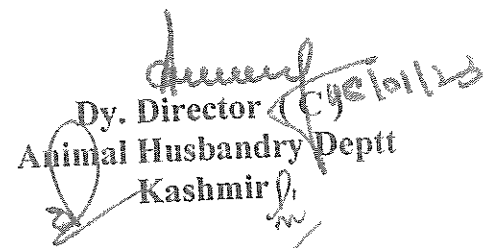 Dy. Director (C)
Animal Husbandry Deptt
Kashmir